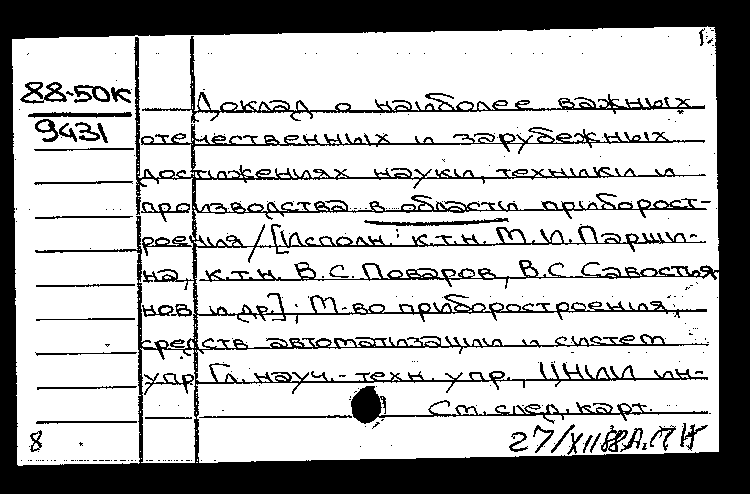 88-50К
9431
Доклад о наиболее важных
отечественных и зарубежных
достижениях науки, техники и
производства в области приборост-
роения / [Исполн.: к.т.н. М.И. Парши-
на, к.т.н. В.С. Поваров, В.С. Савостья-
нов и др.]; М-во приборостроения,
средств автоматизации и систем
упр. Гл. науч.-техн. упр., ЦНИИ ин-
См. след. карт.
8
27/XII 88